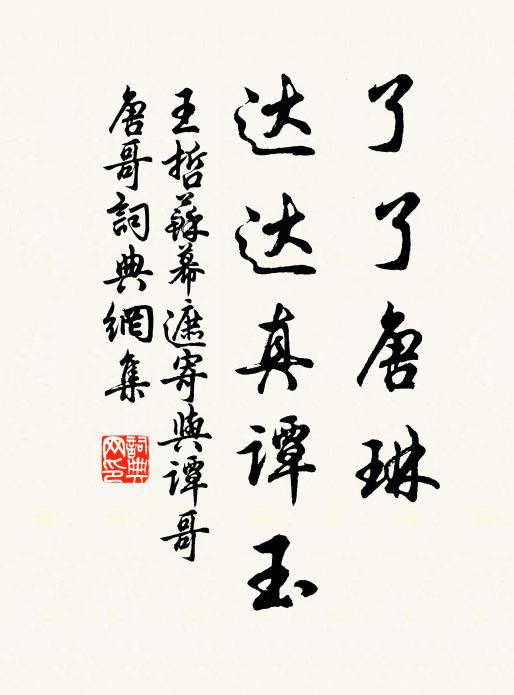 了了唐琳
达达真谭玉
王哲蘇幕遮寄與谭哥
唐哥詞典網集
詞典网印